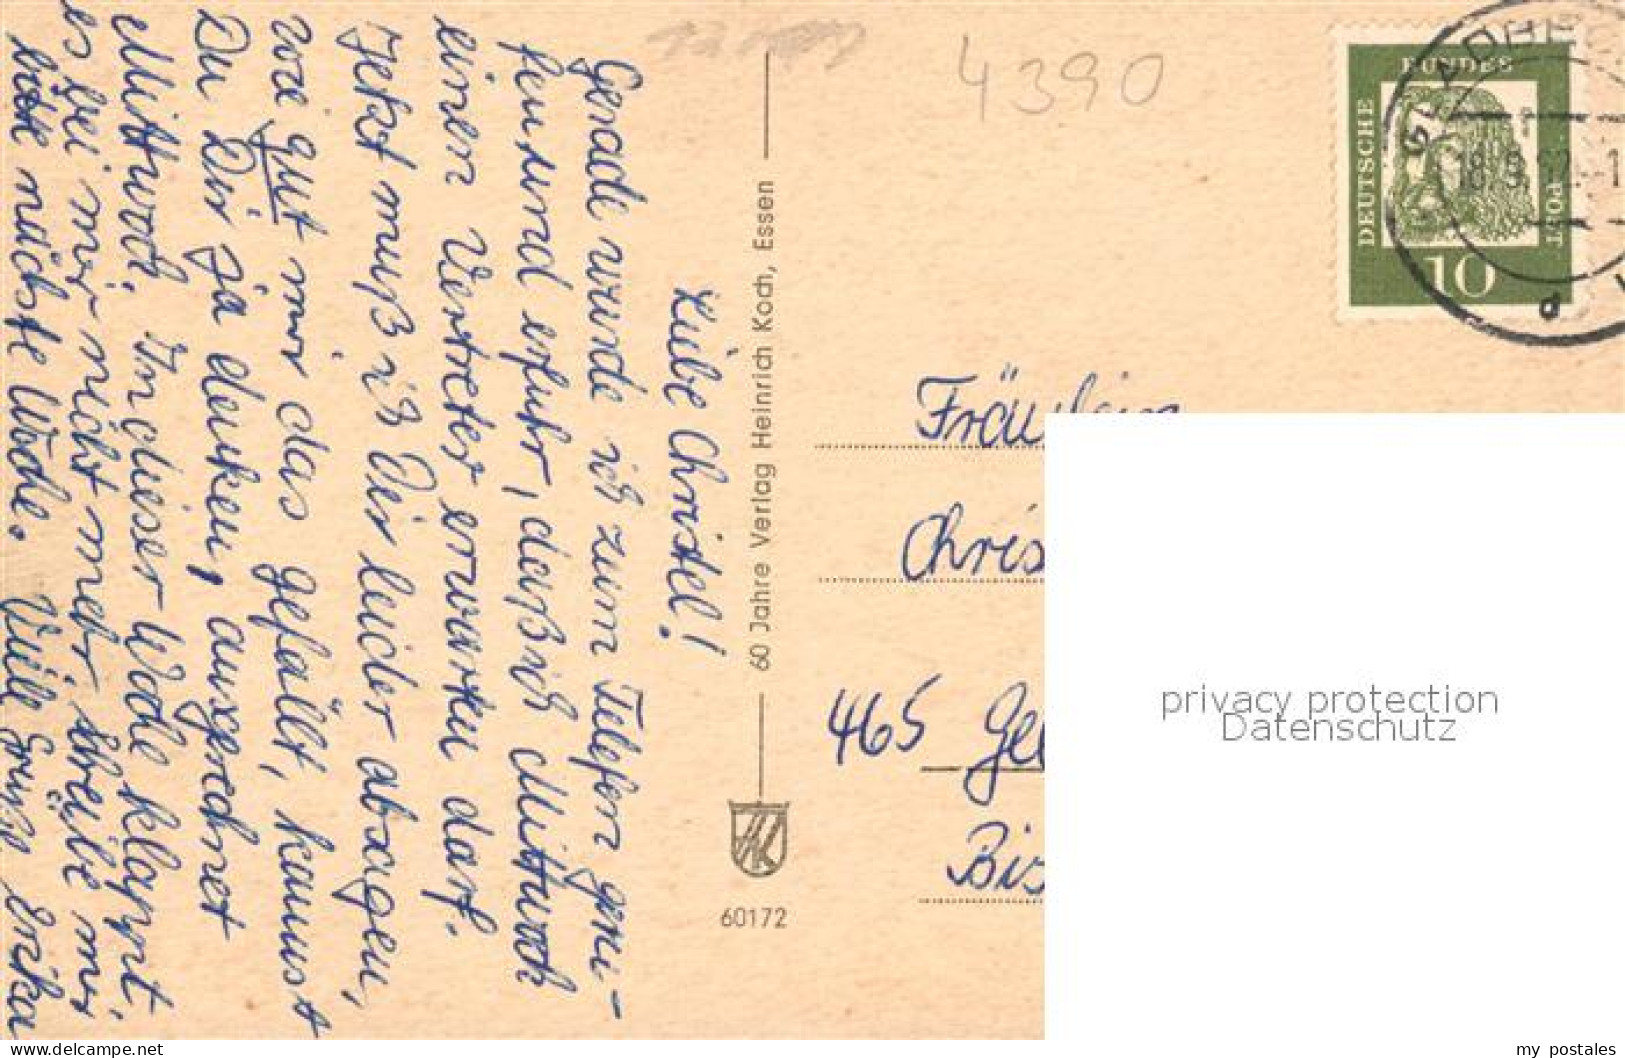 Liebe Christel!
Gerade wurde ich zum Telefon geru-
fen und erfuhr, daß ich Mittwoch
einen Vertreter erwarten darf.
Jetzt muß ich Dir leider absagen,
wie gut mir das gefällt, kannst
Du Dir ja denken, ausgerechnet
Mittwoch. In dieser Woche klappt
es bei mir nicht mehr, schreibe mir
bitte nächste Woche. Viele Grüße Erika
60 Jahre Verlag Heinrich Koch, Essen
HK
60172
4390
DEUTSCHE
BUNDES
POST
10
GLADBECK
18.9.62.-1
d
Fräulein
Chris
465 Gel
Bis
privacy protection
Datenschutz
www.delcampe.net
my_postales